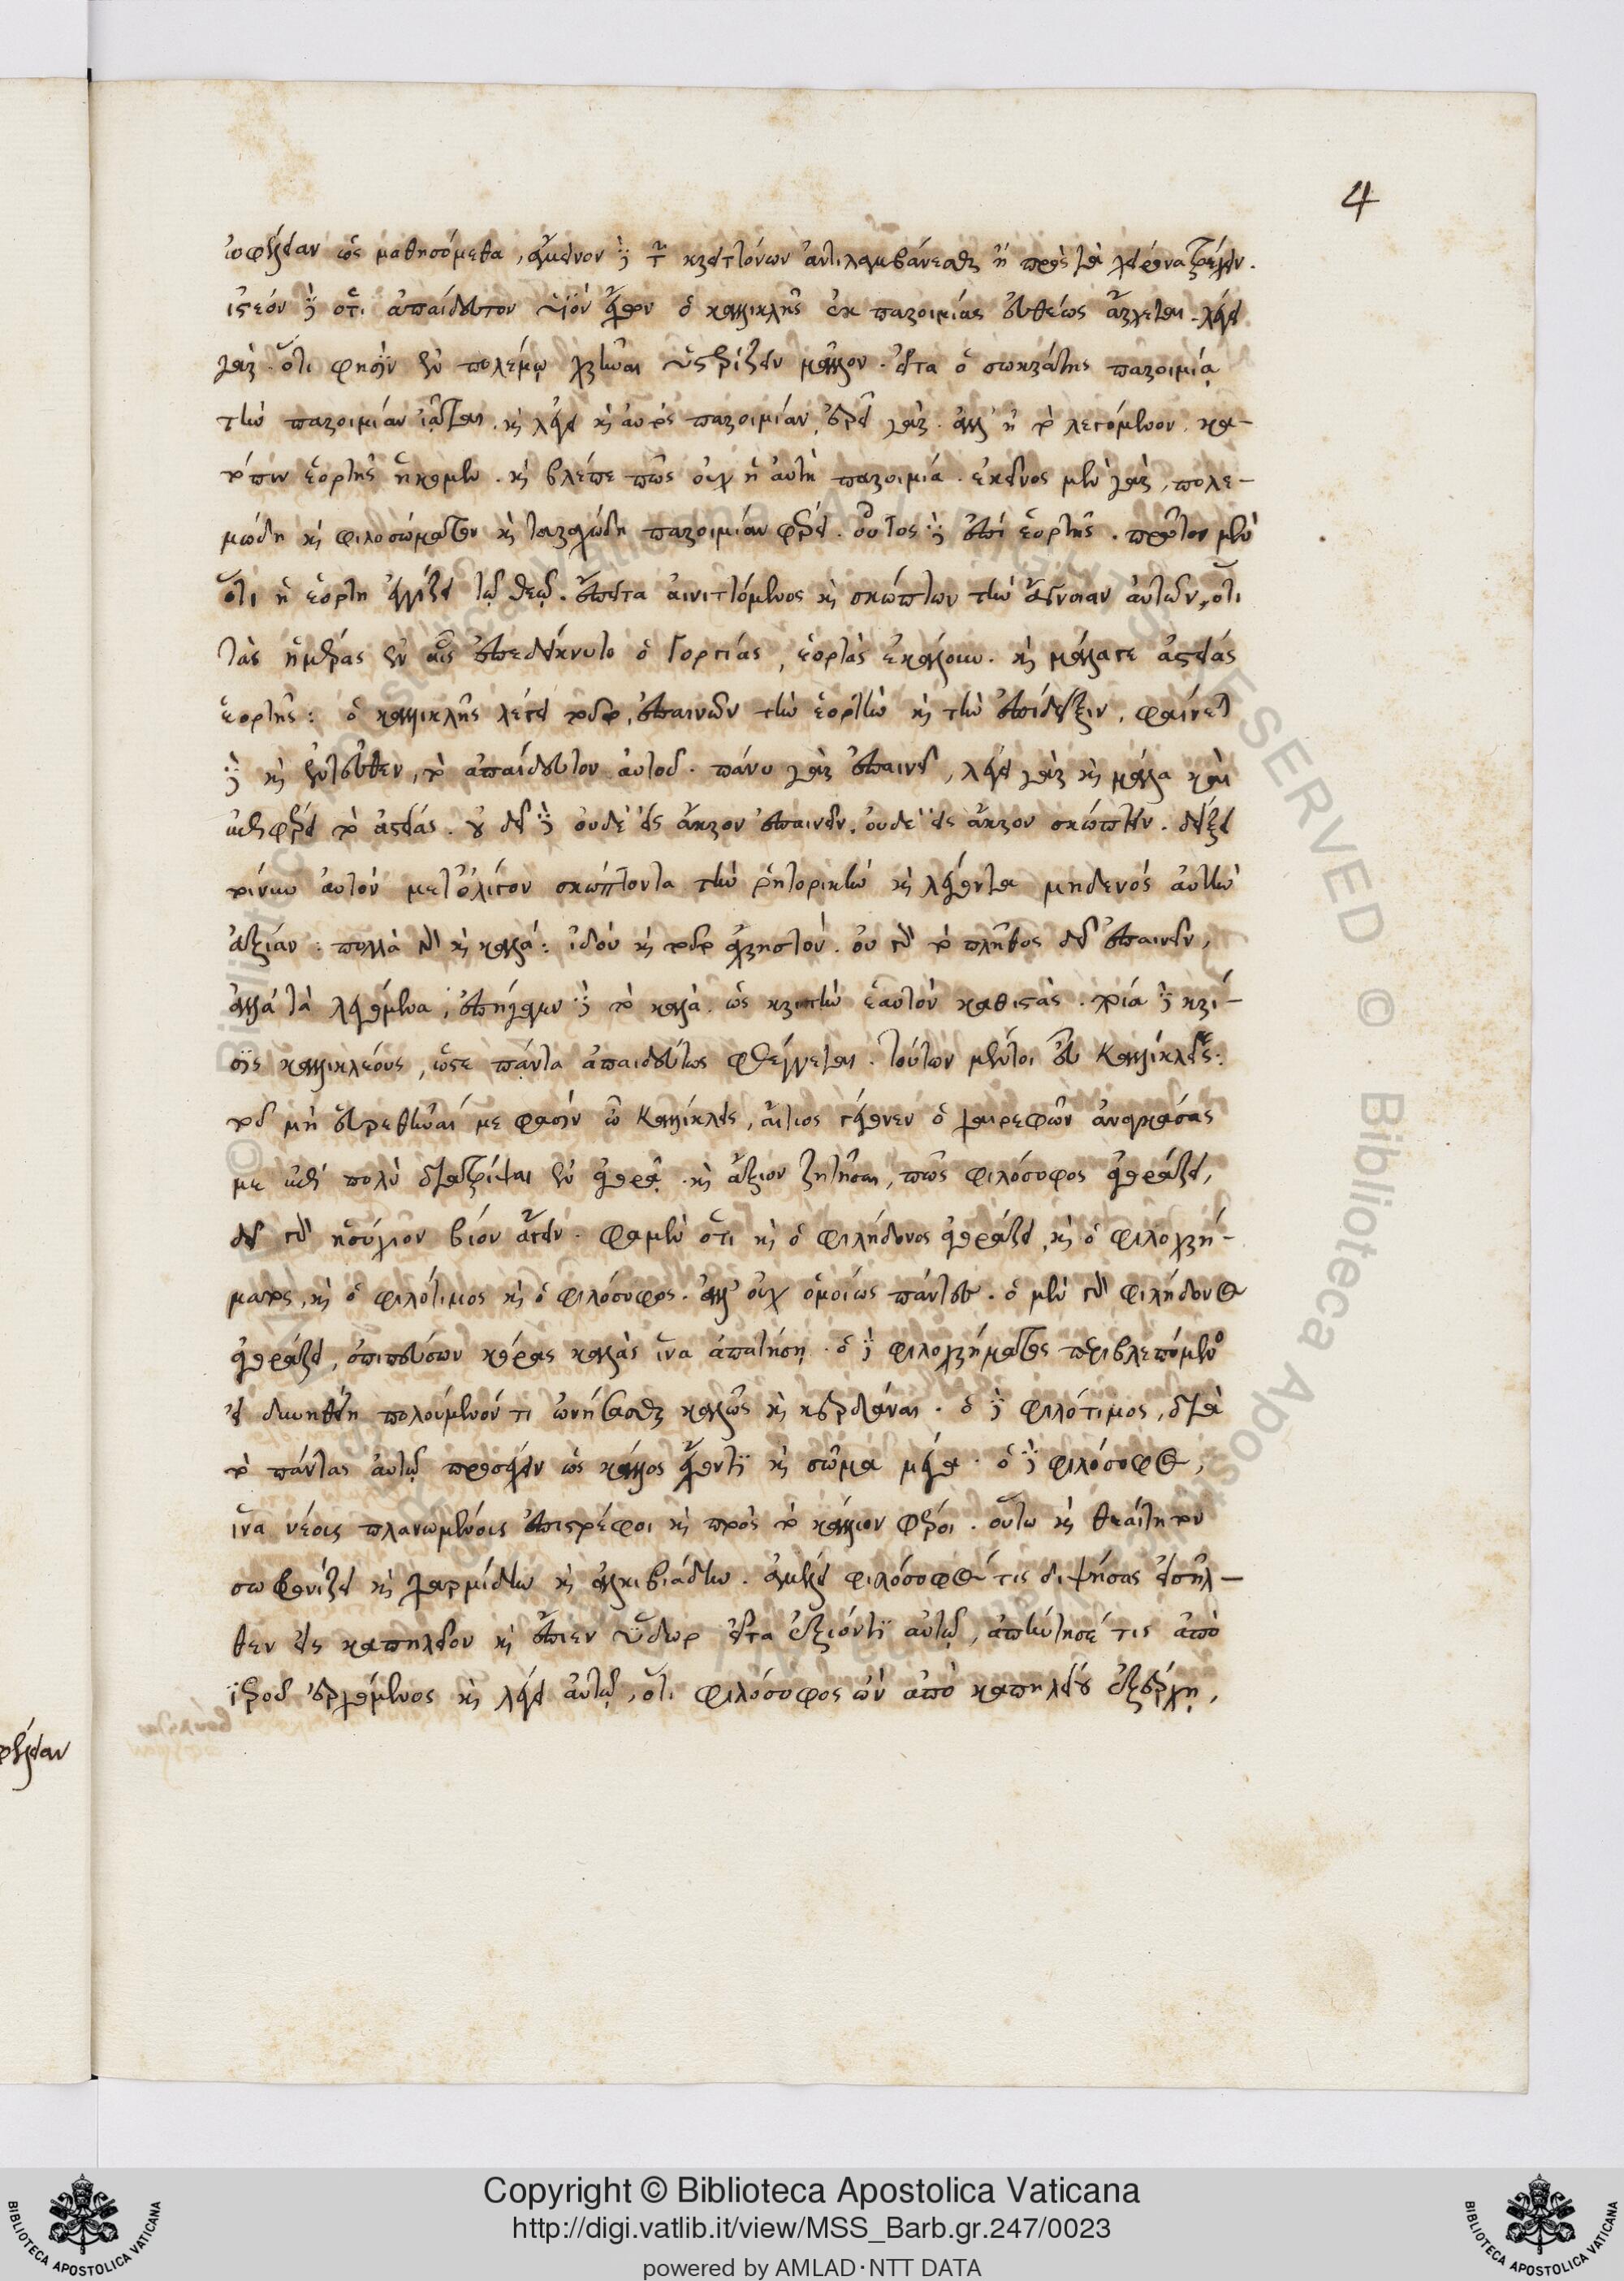 4
ὠφέλειαν ὡς μαθησόμεθα, ἄμεινον δὲ τῶν κρειττόνων ἀντιλαμβάνεσθαι ἢ πρὸς τὰ χείρονα τρέχειν.
ἰστέον δὲ ὅτι ἀπαίδευτον υἱὸν ἔχων ὁ καλλικλῆς ἐκ παροιμίας εὐθέως ἄρχεται. λέγει
γὰρ ὅτι φησὶν ἐν πολέμῳ χρῆναι ὑστερίζειν μᾶλλον. εἶτα ὁ σωκράτης παροιμίᾳ
τὴν παροιμίαν ἰᾶται. καὶ λέγει καὶ αὐτὸς παροιμίαν, ἐρεῖ γάρ. ἀλλ' ἢ τὸ λεγόμενον, κα-
τόπιν ἑορτῆς ἥκομεν. καὶ βλέπε πῶς οὐχ ἡ αὐτὴ παροιμία. ἐκεῖνος μὲν γὰρ, πολε-
μώδη καὶ φιλοσώματον καὶ ταραχώδη παροιμίαν φέρει. οὗτος δὲ ἐπὶ ἑορτῆς. πρῶτον μὲν
ὅτι ἡ ἑορτὴ ἐγγίζει τῷ θεῷ. ἔπειτα αἰνιττόμενος καὶ σκώπτων τὴν ἄγνοιαν αὐτῶν, ὅτι
τὰς ἡμέρας ἐν αἷς ἐπεδείκνυτο ὁ Γοργίας, ἑορτὰς ἐκάλουν. καὶ μάλα γε ἀστείας
ἑορτῆς: ὁ καλλικλῆς λέγει τοῦτο, ἐπαινῶν τὴν ἑορτὴν καὶ τὴν ἐπίδειξιν. φαίνεται
δὲ καὶ ἐντεῦθεν, τὸ ἀπαίδευτον αὐτοῦ. πάνυ γὰρ ἐπαινεῖ, λέγει γὰρ καὶ μάλα καὶ
ἐπιφέρει τὸ ἀστείας. οὐ δεῖ δὲ οὐδὲ εἰς ἄκρον ἐπαινεῖν. οὐδὲ εἰς ἄκρον σκώπτειν. δείξει
τοίνυν αὐτὸν μετ' ὀλίγον σκώπτοντα τὴν ῥητορικὴν καὶ λέγοντα μηδενὸς αὐτὴν
ἀξίαν: πολλὰ γὰρ καὶ καλά: ἰδοὺ καὶ τοῦτο ἄχρηστον. οὐ γὰρ τὸ πλῆθος δεῖ ἐπαινεῖν,
ἀλλὰ τὰ λεγόμενα, ἐπήγαγεν δὲ τὸ καλὰ. ὡς κριτὴν ἑαυτὸν καθιστὰς. ποία δὲ κρί-
σις καλλικλέους, ὥστε πάντα ἀπαιδεύτως φθέγγεται. τούτων μέντοι ὦ Καλλίκλεις:
τοῦ μὴ εὑρεθῆναί με φησὶν ὦ Καλλίκλεις, αἴτιος γέγονεν ὁ χαιρεφῶν ἀναγκάσας
με ἐπὶ πολὺ διατρίψαι ἐν ἀγορᾷ. καὶ ἄξιον ζητῆσαι, πῶς φιλόσοφος ἀγοράζει,
δεῖ γὰρ ἡσύχιον βίον ἄγειν. φαμὲν ὅτι καὶ ὁ φιλήδονος ἀγοράζει, καὶ ὁ φιλοχρή-
ματος, καὶ ὁ φιλότιμος καὶ ὁ φιλόσοφος. ἀλλ' οὐχ ὁμοίως πάντες. ὁ μὲν γὰρ φιλήδονος
ἀγοράζει, ὀπιπεύσων κόρας καλὰς ἵνα ἀπατήσῃ. ὁ δὲ φιλοχρήματος περιβλεπόμενος
εἰ δυνηθείη πωλούμενόν τι ὠνήσασθαι καλῶς καὶ κερδᾶναι. ὁ δὲ φιλότιμος, διὰ
τὸ πάντας αὐτῷ προσέχειν ὡς κάλλος ἔχοντι καὶ σῶμα μέγα. ὁ δὲ φιλόσοφος,
ἵνα νέοις πλανωμένοις ἐπιστρέφοι καὶ πρὸς τὸ κάλλιον φέροι. οὕτω καὶ θεαίτητον
σωφρονίζει καὶ χαρμίδην καὶ ἀλκιβιάδην. ἀμέλει φιλόσοφός τις διψήσας εἰσῆλ-
θεν εἰς καπηλεῖον καὶ ἔπιεν ὕδωρ εἶτα ἐξιόντι αὐτῷ, ἀπήντησέ τις ἀπὸ
ἱεροῦ ἐρχόμενος καὶ λέγει αὐτῷ, ὅτι φιλόσοφος ὢν ἀπὸ καπηλείου ἐξέρχῃ,
Copyright © Biblioteca Apostolica Vaticana
http://digi.vatlib.it/view/MSS_Barb.gr.247/0023
powered by AMLAD·NTT DATA
BIBLIOTECA APOSTOLICA VATICANA
BIBLIOTECA APOSTOLICA VATICANA